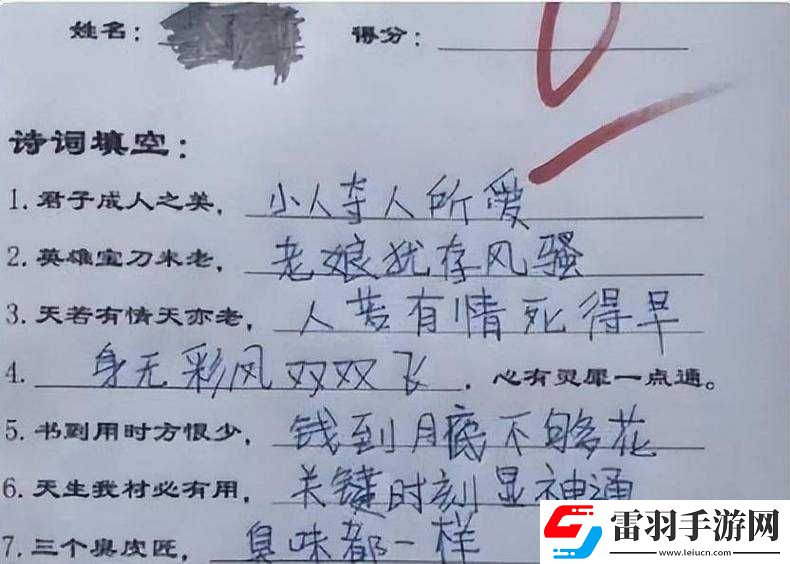 姓名： 得分：
诗词填空：
1.君子成人之美，小人夺人所爱
2.英雄宝刀未老，老娘犹存风骚
3.天若有情天亦老，人若有情死得早
4.身无彩凤双双飞，心有灵犀一点通。
5.书到用时方恨少，钱到月底不够花
6.天生我材必有用，关键时刻显神通
7.三个臭皮匠，臭味都一样
雷羽手游网
www.leiucn.com